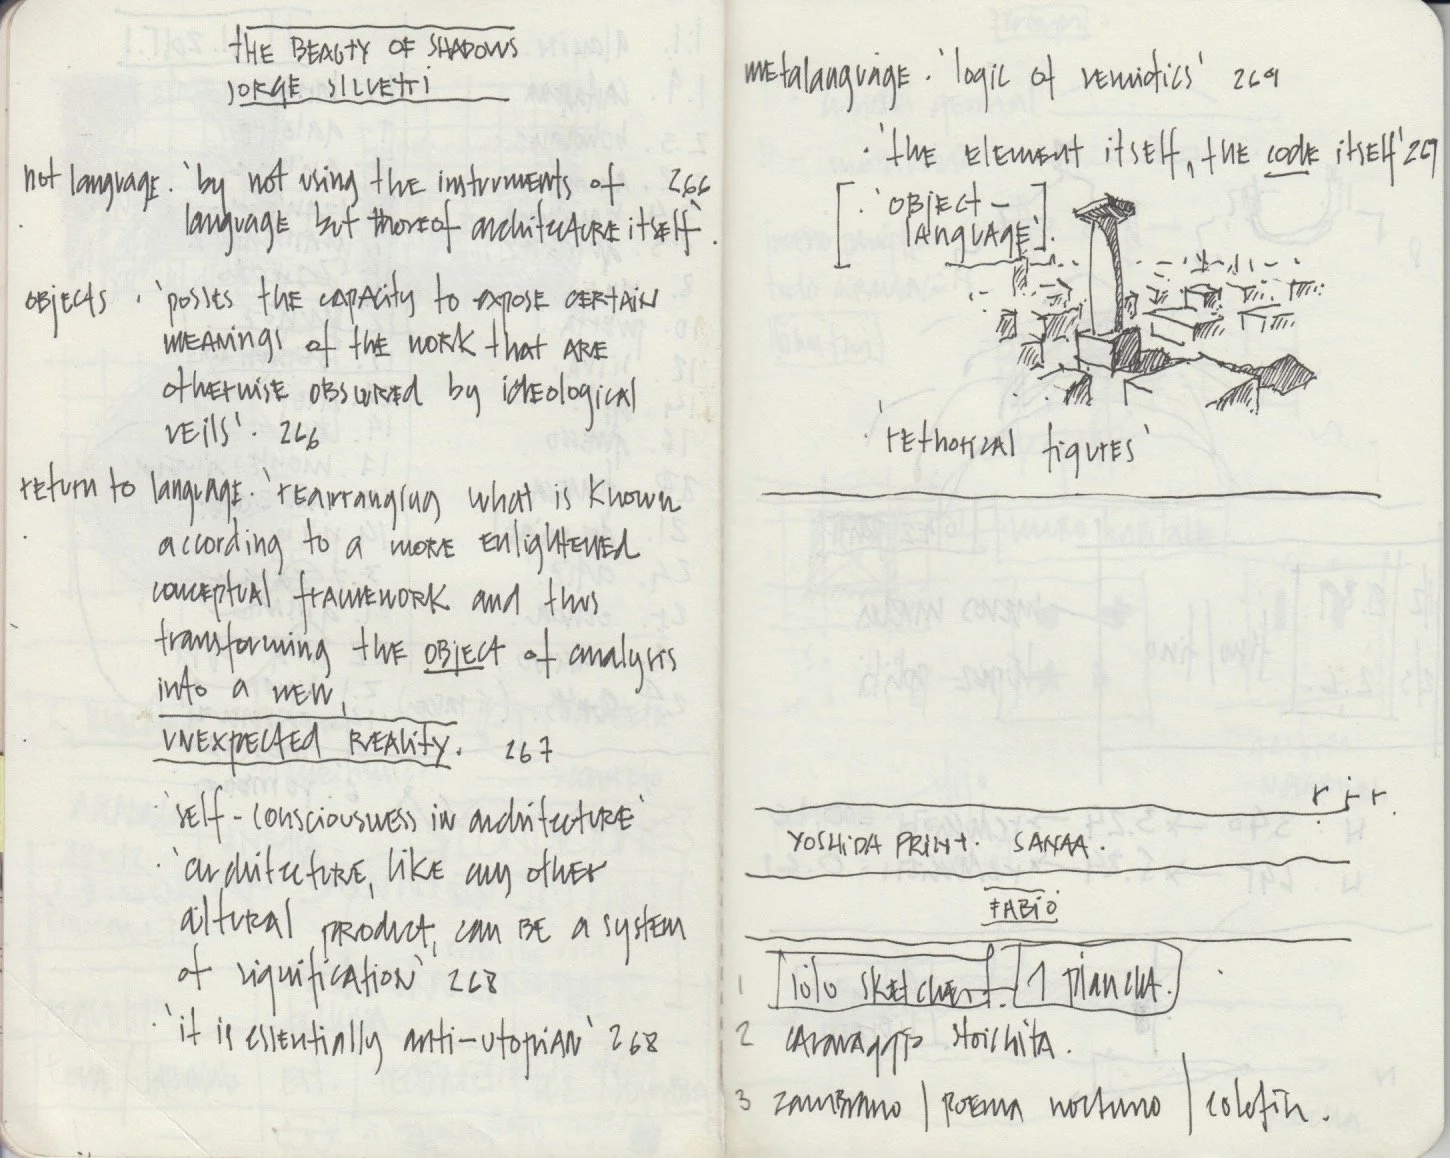 THE BEAUTY OF SHADOWS
JORGE SILVETTI
not language. 'by not using the instruments of 266
language but those of architecture itself'.
objects. 'posses the capacity to expose certain
meanings of the work that are
otherwise obscured by ideological
veils'. 266
return to language. 'rearranging what is known
according to a more enlightened
conceptual framework and thus
transforming the object of analysis
into a new,
unexpected reality. 267
'self-consciousness in architecture'
'architecture, like any other
cultural product, can be a system
of signification' 268
'it is essentially anti-utopian' 268
metalanguage. 'logic of semiotics' 269
'the element itself, the code itself' 269
['object-
language'].
'rethorical figures'
YOSHIDA PRINT. SANAA.
FABIO
1 sketcher. 1 plancha.
2 caravaggio stoichita.
3 zambrano | poema nocturno |